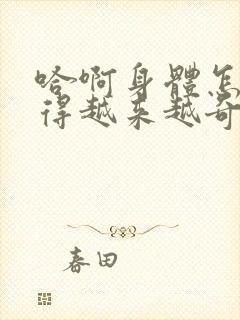 哈啊身體怎
得越来越奇
春田